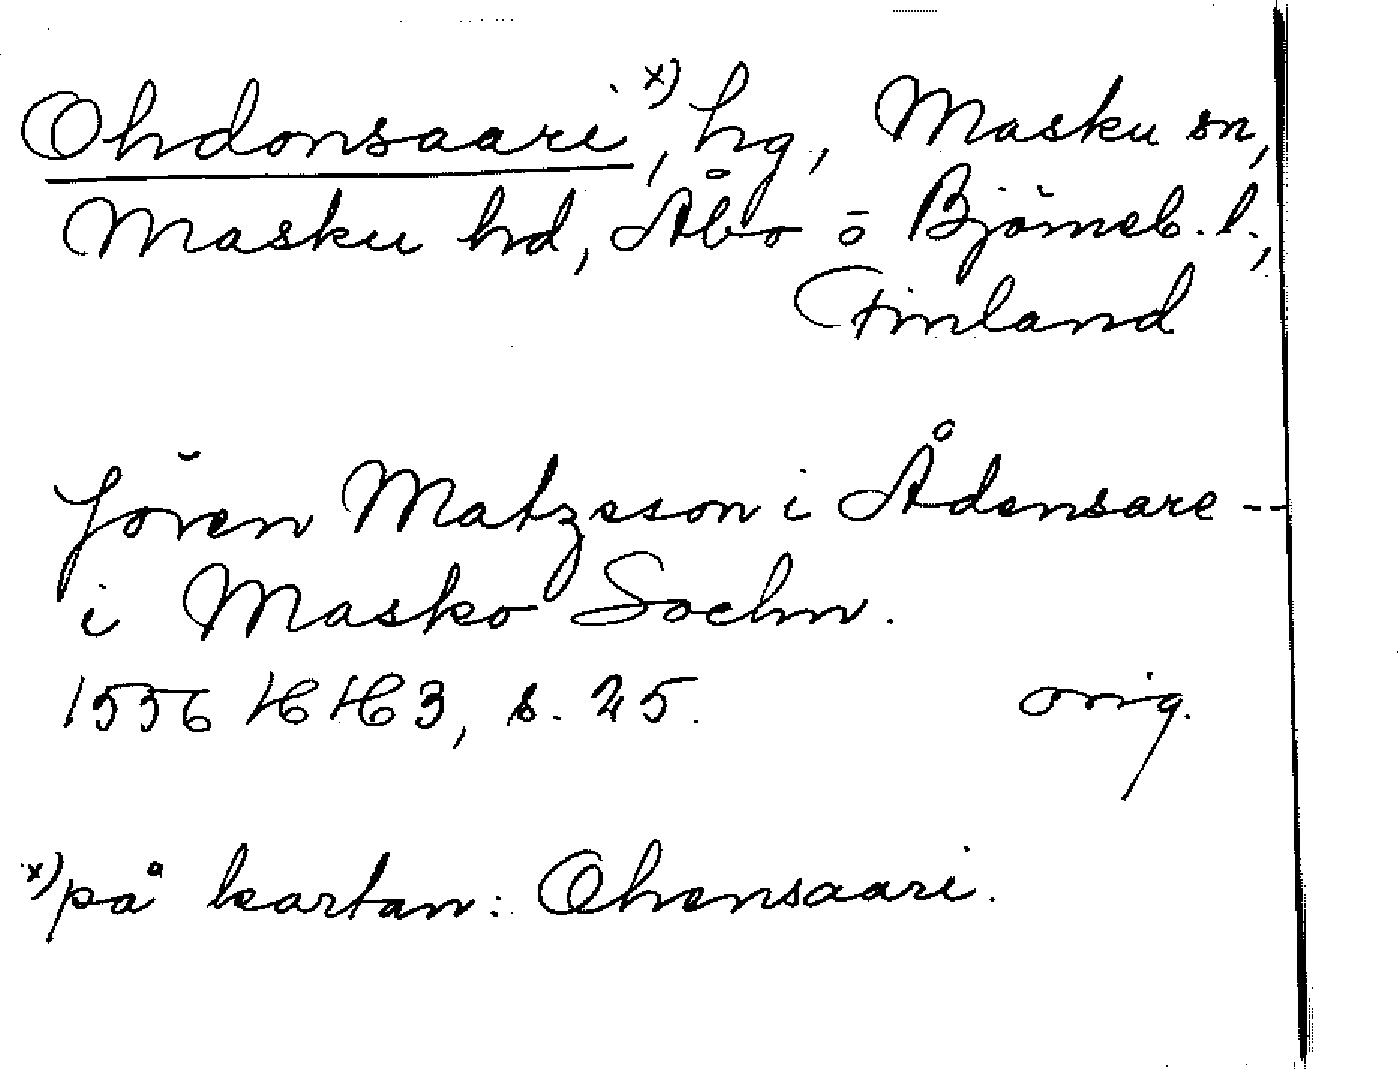 Ohdonsaari, x) hg, Masku sn,
Masku hd, Åbo o Björneb. l.,
Finland
Jören Matzsson i Ådensare --
i Masko Sochn.
1556 HH3, s. 25. orig.
x) på kartan: Ohensaari.